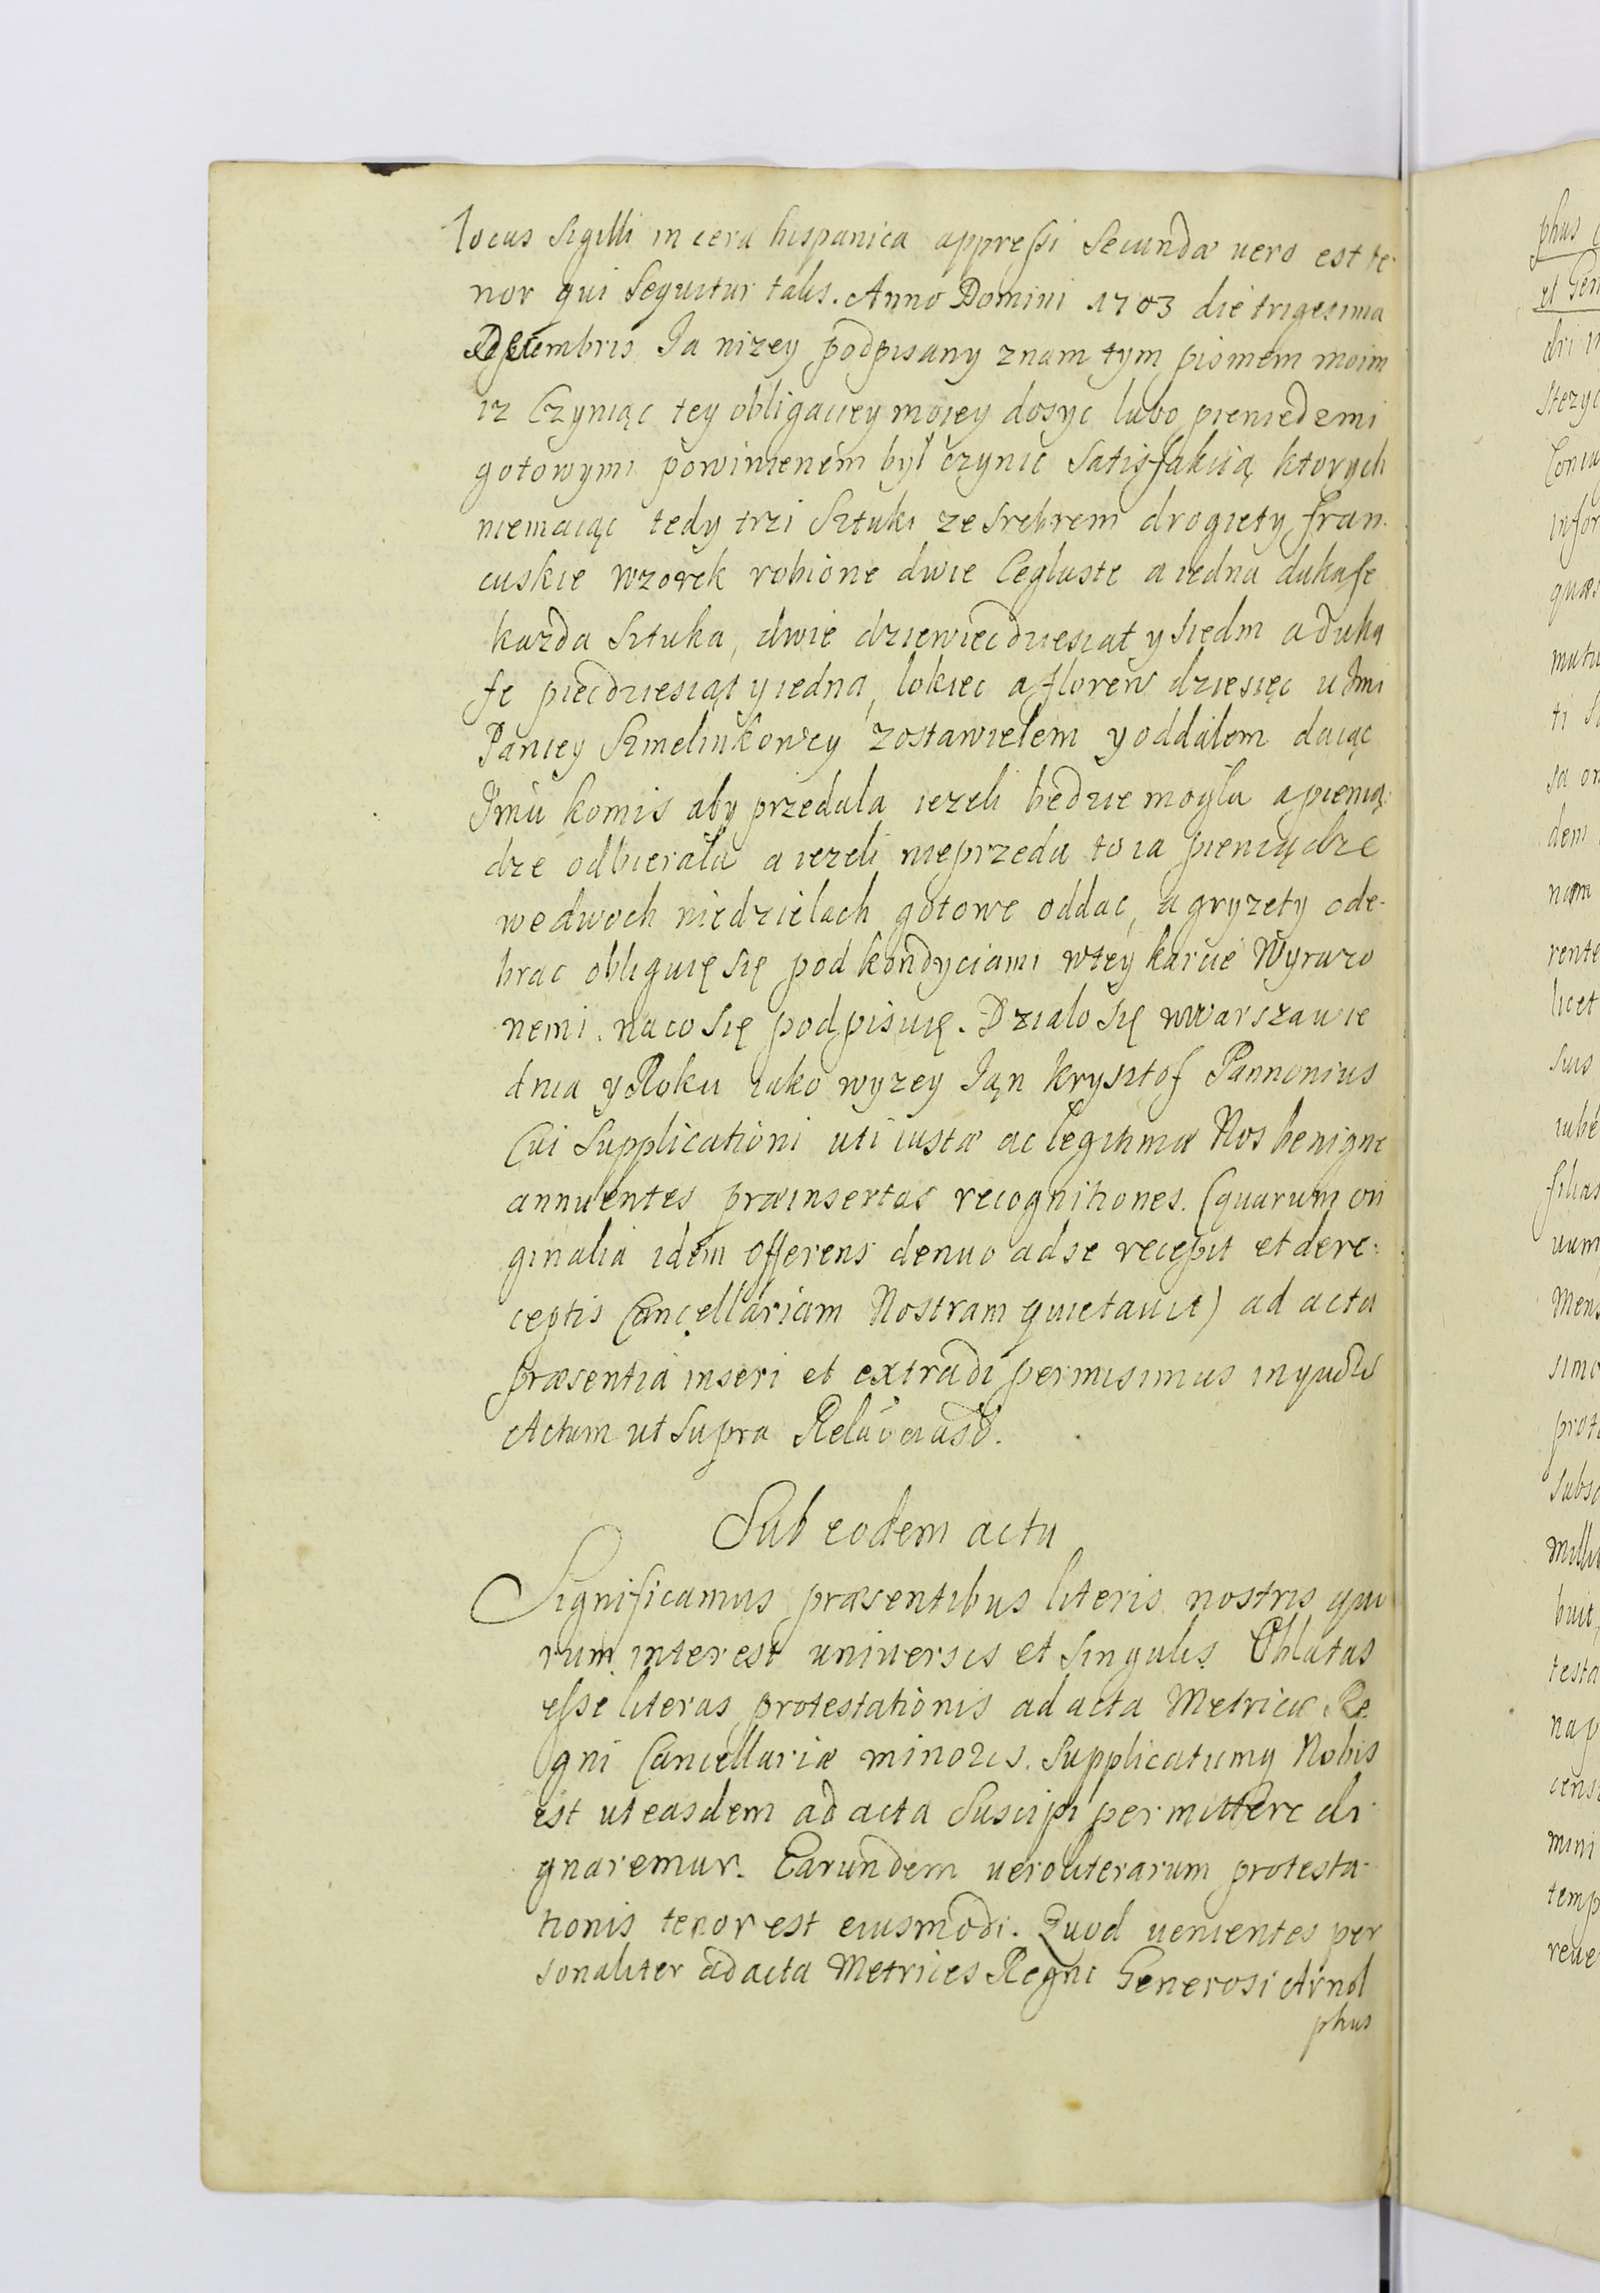 locus Sigilli in cera hispanica appressi Secundæ uero est te-
nor qui Sequitur talis. Anno Domini 1703 die trigesima
Decembris Ia nizey podpisany znam tym pismem moim
iz Czyniąc tey obligacyey moiey dosyc lubo pieniedzmi
gotowymi powinienem był czynic Satisfakcią ktorych
niemaiąc tedy trzi Sztuki ze srebrem drogiety fran-
cuskie wzorek robione dwie Ceglaste a iedna dukafe
kazda Sztuka, dwie dziewiecdziesiat y siedm a duka
fe piecdziesiąt y iedna, lokiec a floren dziesięc u Jmi
Paniey Szmelinkowey zostawielem y oddalem daiąc
Jmu komis aby przedala iezeli bedzie mogla a pienią-
dze odbierala a iezeli nieprzeda to ia pieniądze
we dwoch niedzielach gotowe oddac, a gryzety ode-
brac obliguię się pod kondyciami wtey karcie Wyrazo
nemi. na co się podpisuię. Dzialo się w Warszawie
dnia y Roku iako wyzey Ian Krysztof Pannonius
Cui Supplicationi uti iustæ ac legitimæ Nos benigne
annuentes præinsertas recognitiones. (quarum ori
ginalia idem Offerens denuo ad se recepit et de re-
ceptis Cancellariam Nostram quietauit) ad acta
præsentia inseri et extradi permisimus
Actum ut Supra
Sub eodem actu
Significamus præsentibus literis nostris quo
rum interest uniuersis et Singulis Oblatas
esse literas protestationis ad acta Metricæ Re
gni Cancellariæ minoris. Supplicatumq Nobis
est ut easdem ad acta Suscipi permittere di
gnaremur. Earundem uero literarum protesta-
tionis tenor est eiusmodi. Quod uenientes per
sonaliter ad acta Metrices Regni Generosi Arnol
phus